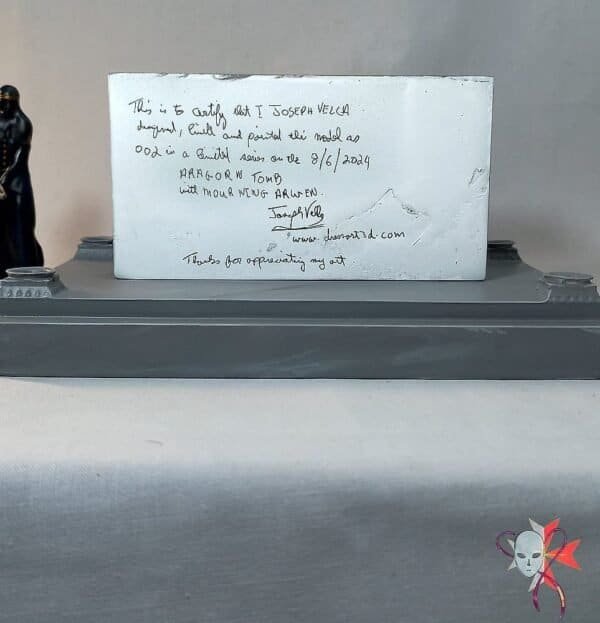 This is to certify that I JOSEPH VELLA
designed, built and painted this model as
002 in a limited series on the 8/6/2024
ARAGORN TOMB
with MOURNING ARWEN.
Joseph Vella
Thanks for appreciating my art.